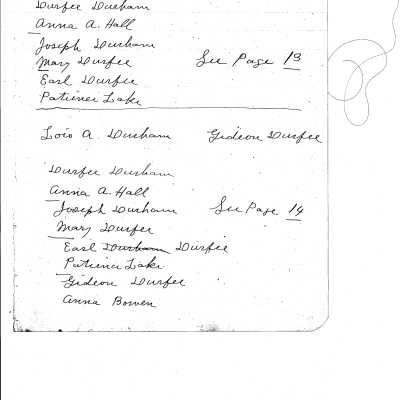 Durfee Durham
Anna A. Hall
Joseph Durham
Mary Durfee See Page 13
Earl Durfee
Patience Lake
Lois A Durham Gideon Durfee
Durfee Durham
Anna A. Hall
Joseph Durham See Page 14
Mary Durfee
Earl Durham Durfee
Patience Lake
Gideon Durfee
Anna Bowen